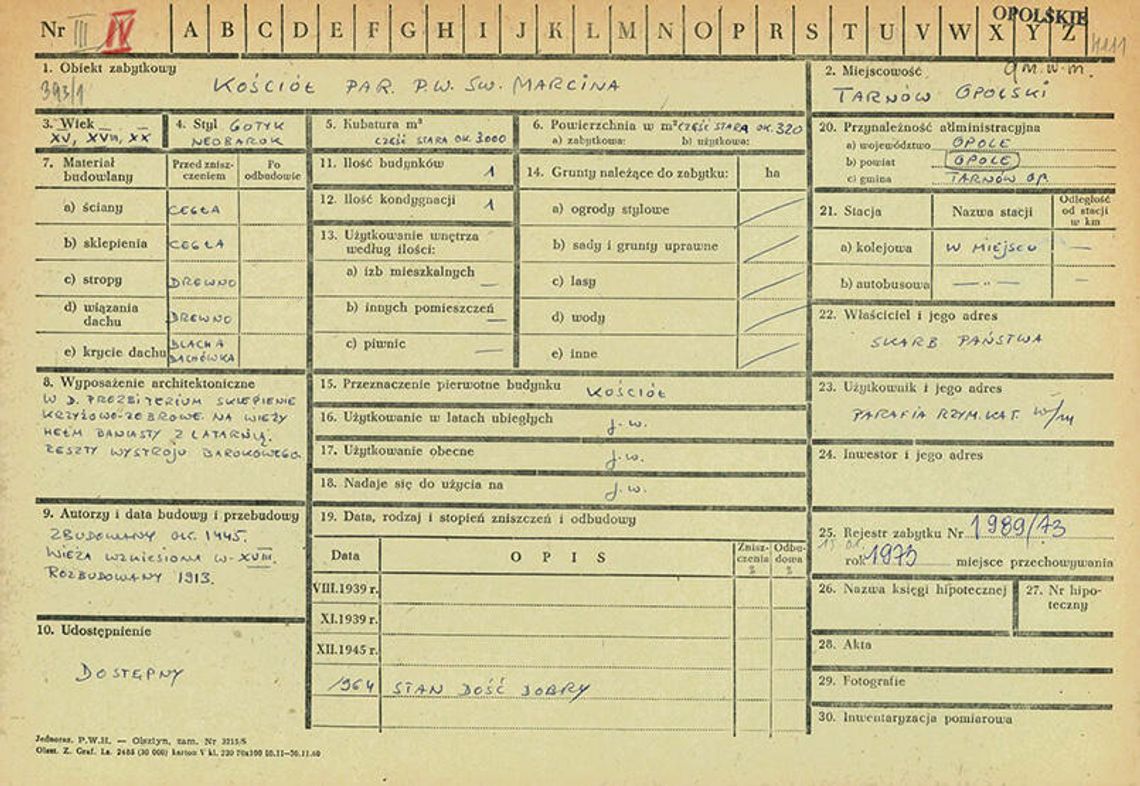 Nr III IV A B C D E F G H I J K L M N O P R S T U V W X Y Z
OPOLSKIE
1. Obiekt zabytkowy
393/1
KOŚCIÓŁ PAR. P.W. ŚW. MARCINA
2. Miejscowość
gm. w. m.
TARNÓW OPOLSKI
3. Wiek
XV, XVIII, XX
4. Styl GOTYK
NEOBAROK
5. Kubatura m³
CZĘŚĆ STARA OK. 3000
6. Powierzchnia w m² CZĘŚĆ STARA OK. 320
a) zabytkowa: b) użytkowa:
7. Materiał budowlany
Przed zniszczeniem
Po odbudowie
a) ściany CEGŁA
b) sklepienia CEGŁA
c) stropy DREWNO
d) wiązania dachu DREWNO
e) krycie dachu BLACHA
DACHÓWKA
8. Wyposażenie architektoniczne
W D. PREZBITERIUM SKLEPIENIE
KRZYŻOWO-ŻEBROWE. NA WIEŻY
HEŁM BANIASTY Z LATARNIĄ.
RESZTY WYSTROJU BAROKOWEGO.
9. Autorzy i data budowy i przebudowy
ZBUDOWANY OK. 1445.
WIEŻA WZNIESIONA W XVIII.
ROZBUDOWANY 1913.
10. Udostępnienie
DOSTĘPNY
11. Ilość budynków 1
12. Ilość kondygnacji 1
13. Użytkowanie wnętrza
według ilości:
a) izb mieszkalnych —
b) innych pomieszczeń —
c) piwnic —
14. Grunty należące do zabytku: ha
a) ogrody stylowe
b) sady i grunty uprawne
c) lasy
d) wody
e) inne
15. Przeznaczenie pierwotne budynku KOŚCIÓŁ
16. Użytkowanie w latach ubiegłych j.w.
17. Użytkowanie obecne j.w.
18. Nadaje się do użycia na j.w.
19. Data, rodzaj i stopień zniszczeń i odbudowy
Data OPIS Zniszczenia % Odbudowa %
VIII.1939 r.
XI.1939 r.
XII.1945 r.
1964 STAN DOŚĆ DOBRY
20. Przynależność administracyjna
a) województwo OPOLE
b) powiat OPOLE
c) gmina TARNÓW OP.
21. Stacja Nazwa stacji Odległość od stacji w km
a) kolejowa W MIEJSCU —
b) autobusowa — " — —
22. Właściciel i jego adres
SKARB PAŃSTWA
23. Użytkownik i jego adres
PARAFIA RZYM. KAT. W/M
24. Inwestor i jego adres
25. Rejestr zabytku Nr 1989/73
rok 1973 miejsce przechowywania
26. Nazwa księgi hipotecznej
27. Nr hipoteczny
28. Akta
29. Fotografie
30. Inwentaryzacja pomiarowa
Jednoraz. P.W.H. — Olsztyn, zam. Nr 3215/S